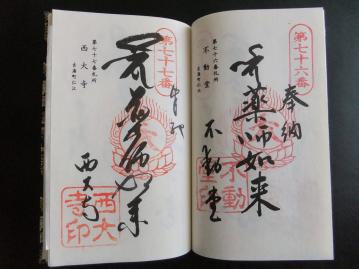 第七十六番
奉納
薬師如来
不動堂
第七十六番札所
不動堂
不動堂印
第七十七番
奉納
薬師如来
西大寺
第七十七番札所
西大寺
西大寺印